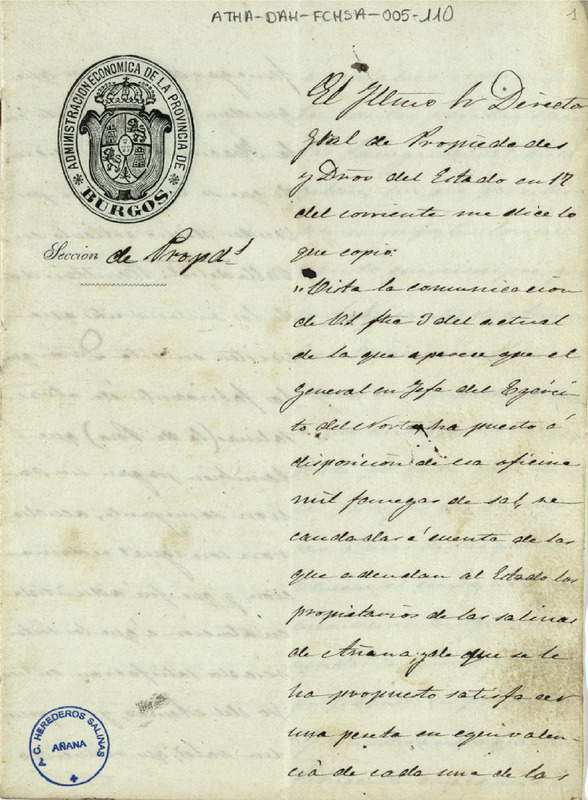 ATHA-DAH-FCHSA-005-110
1
ADMINISTRACION ECONOMICA DE LA PROVINCIA DE
BURGOS.
Sección de Propds
El Yltmo Sr Director
Gral de Propiedades
y Dros del Estado en 17
del corriente me dice lo
que copio:
"Vista la comunicacion
de V.S. fha 3 del actual
de la que aparece que el
General en Jefe del Egérci-
to del Norte, ha puesto á
disposición de esa oficina
mil fanegas de sal, re-
caudadas á cuenta de las
que adeudan al Estado los
propietarios de las salinas
de Añana y de que se le
ha propuesto satisfacer
una peseta en equivalen-
cia de cada una de las
C. HEREDEROS SALINAS
AÑANA